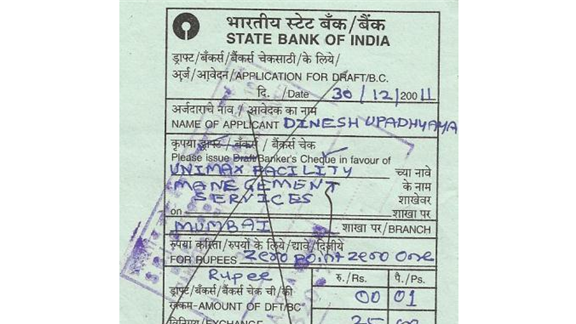 भारतीय स्टेट बँक/बैंक
STATE BANK OF INDIA
ड्राफ्ट/बँकर्स/बैंकर्स चेकसाठी/के लिये/
अर्ज/आवेदन/APPLICATION FOR DRAFT/B.C.
दि. /Date 30/12/200 11
अर्जदाराचे नाव / आवेदक का नाम
NAME OF APPLICANT DINESH UPADHYAYA
कृपया ड्राफ्ट / बँकर्स / बैंकर्स चेक
Please issue Draft/Banker's Cheque in favour of
UNIMAX FACILITY च्या नावे
MANEGEMENT के नाम
SERVICES शाखेवर
on शाखा पर
MUMBAI शाखा पर/BRANCH
रुपयां करिता/रुपयों के लिये/द्यावे/दिजीये
FOR RUPEES Zero point zero one
Rupee रु./Rs. पै./Ps.
ड्राफ्ट/बँकर्स/बैंकर्स चेक ची/की
रक्कम-AMOUNT OF DFT/BC 00 01
विनिमय/EXCHANGE 25